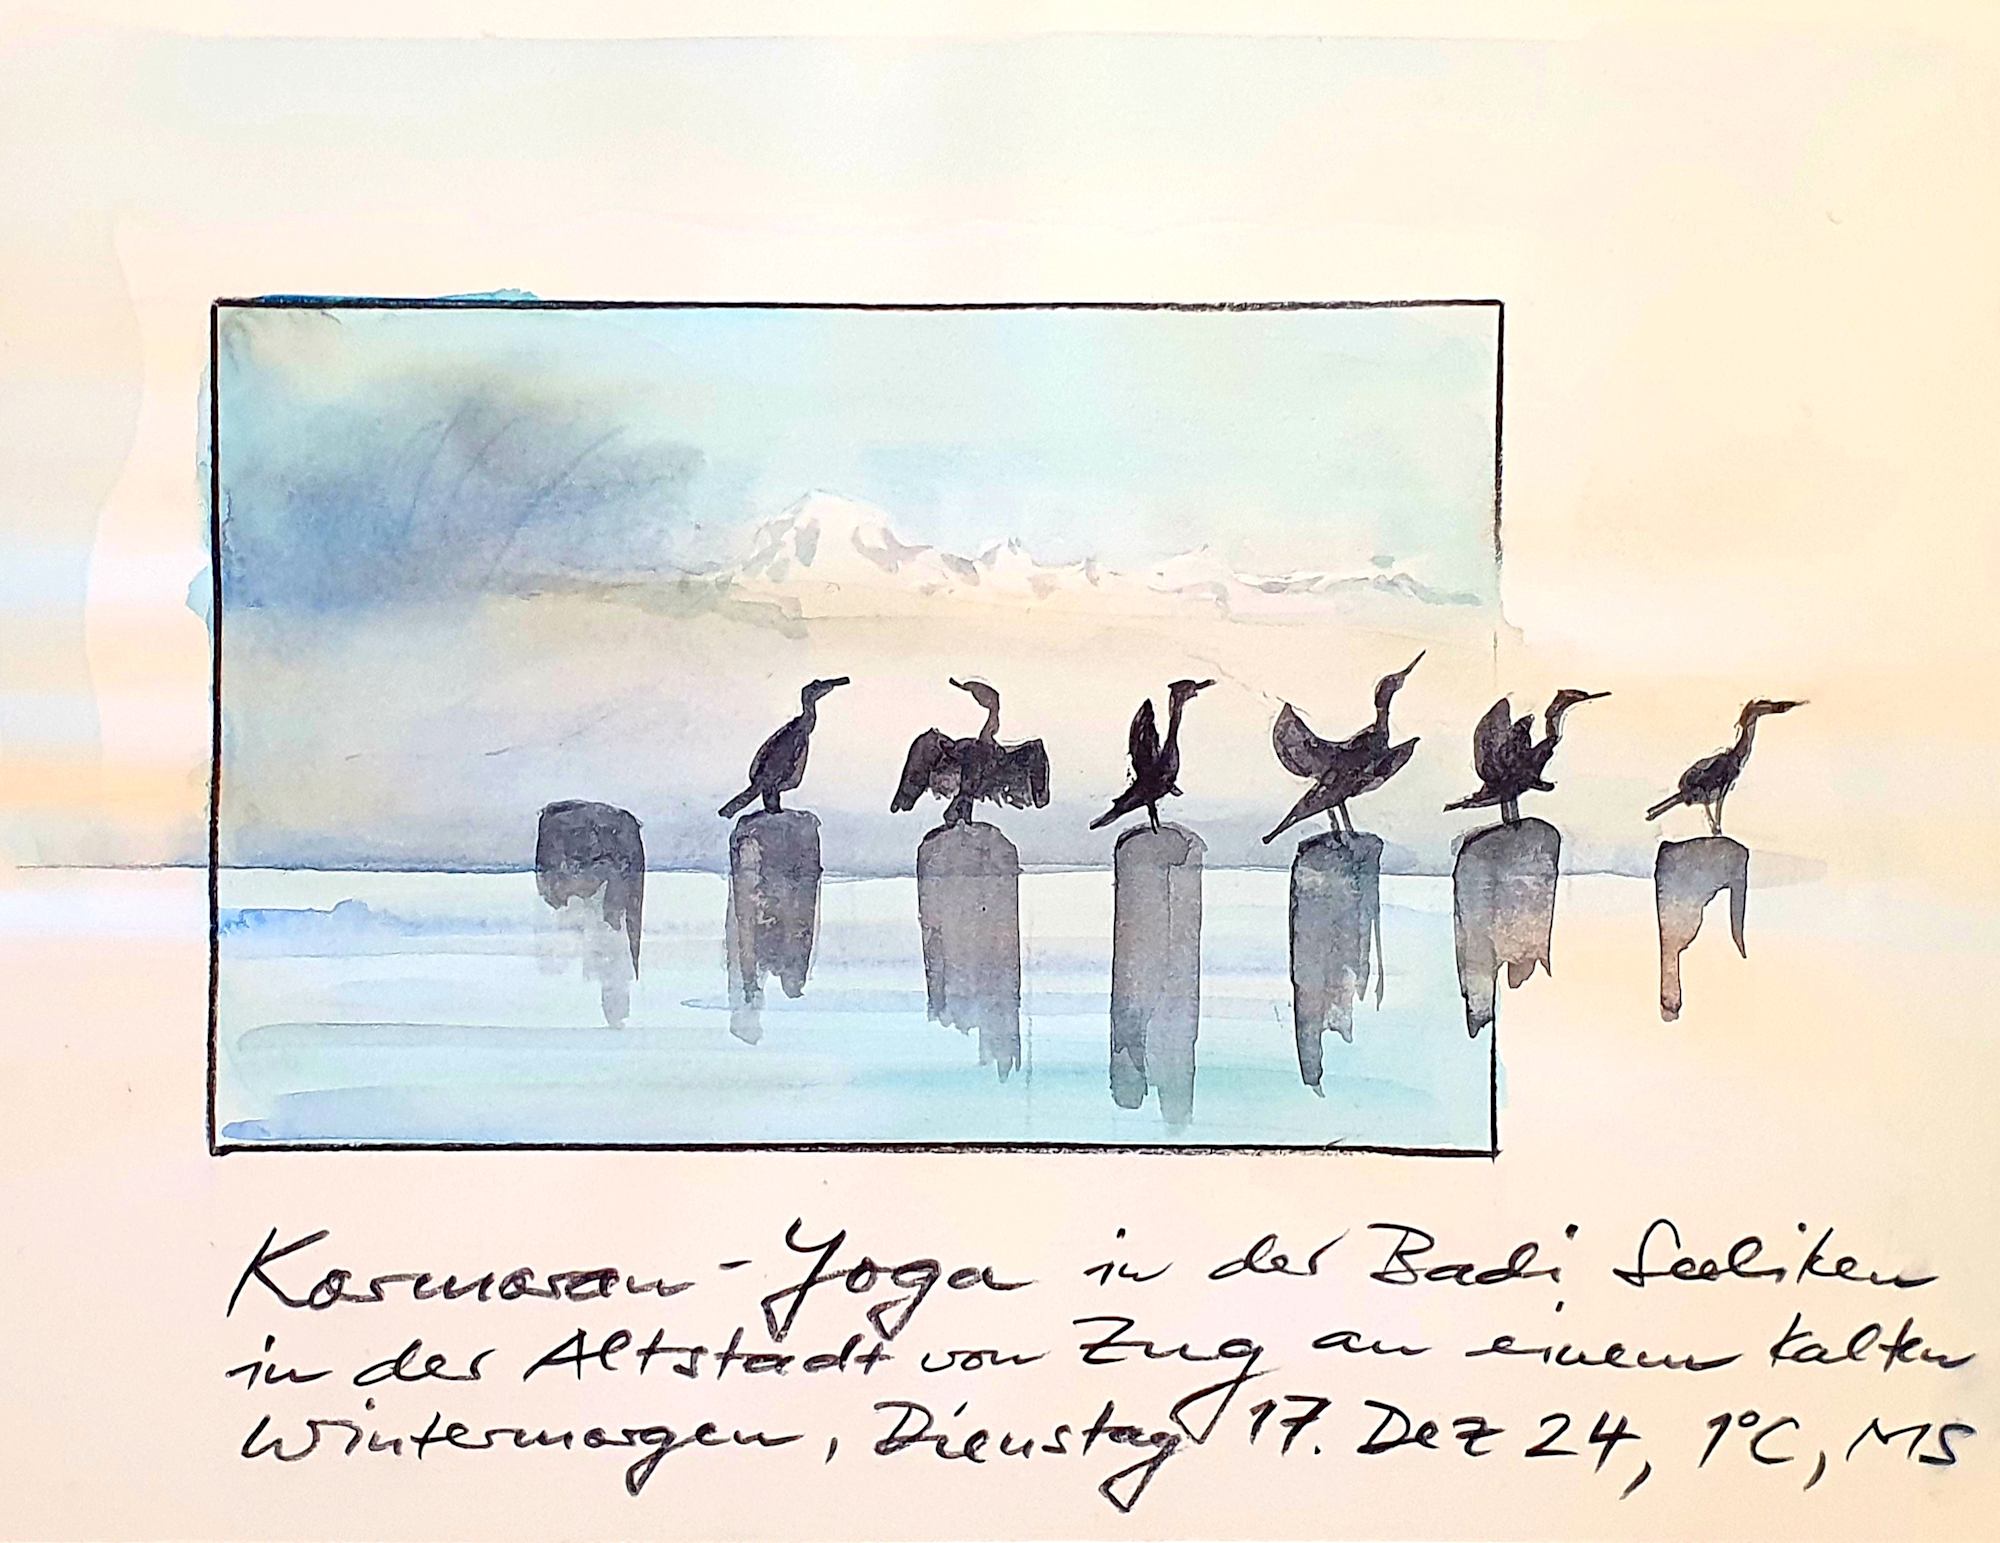 Kormoran-Yoga in der Badi Seeliken
in der Altstadt von Zug an einem kalten
Wintermorgen, Dienstag 17. Dez 24, 1°C, MS